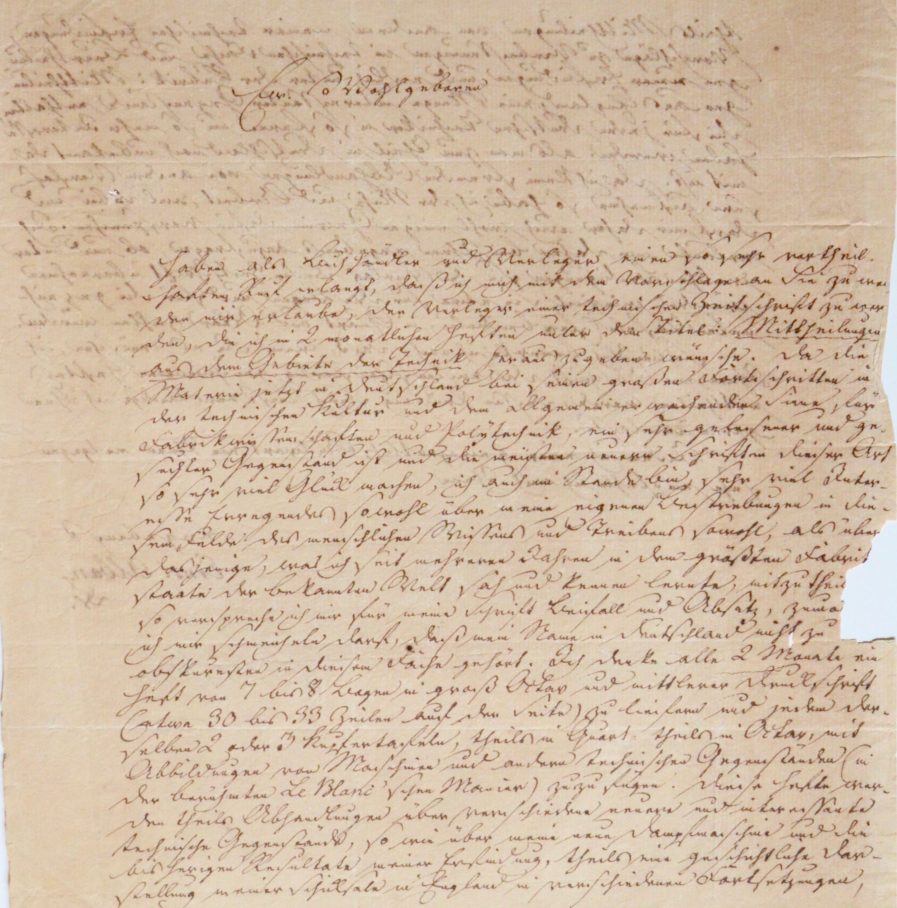 Ew. Wohlgeboren
haben als Buchhändler und Verleger einen so sehr vortheil-
haften Ruf erlangt, daß ich mich mit dem Vorschlage an Sie zu wen-
den mir erlaube, der Verleger einer technischen Zeitschrift zu wer-
den, die ich in 2 monatlichen Heften unter dem Titel: Mittheilungen
aus dem Gebiete der Technik herauszugeben wünsche. Da die
Materie jetzt in Deutschland bei seinen großen Fortschritten in
der technischen Kultur und dem allgemein erwachenden Sinne für
Fabrikwissenschaften und Polytechnik, ein sehr gelesener und ge-
suchter Gegenstand ist und die meisten neuern Schriften dieser Art
so sehr viel Glück machen, ich auch im Stande bin, sehr viel Inter-
esse Erregendes sowohl über meine eigenen Bestrebungen in die-
sem Felde des menschlichen Wissens und Treibens sowohl, als über
dasjenige, was ich seit mehreren Jahren in dem größten Fabrik
staate der bekannten Welt sah und kennen lernte, mitzutheil
so verspreche ich mir für meine Schrift Beifall und Absatz, zuma
ich mir schmeicheln darf, daß mein Name in Deutschland nicht zu
obskursten in diesem Fache gehört. Ich denke alle 2 Monate ein
Heft von 7 bis 8 Bogen in groß Octav und mittlerer Druckschrift
(etwa 30 bis 33 Zeilen auf der Seite) zu liefern und jedem der-
selben 2 oder 3 Kupfertafeln, theils in Quart theils in Octav, mit
Abbildungen von Maschinen und andern technischen Gegenständen (in
der berühmten Le Blanc'schen Manier) zuzufügen. Diese Hefte wer-
den theils Abhandlungen über verschiedene neuere und interessante
technische Gegenstände, so wie über meine neue Dampfmaschine und die
bisherigen Resultate meiner Erfindung, theils eine geschichtliche Dar-
stellung meiner Schicksale in England in verschiedenen Fortsetzungen,